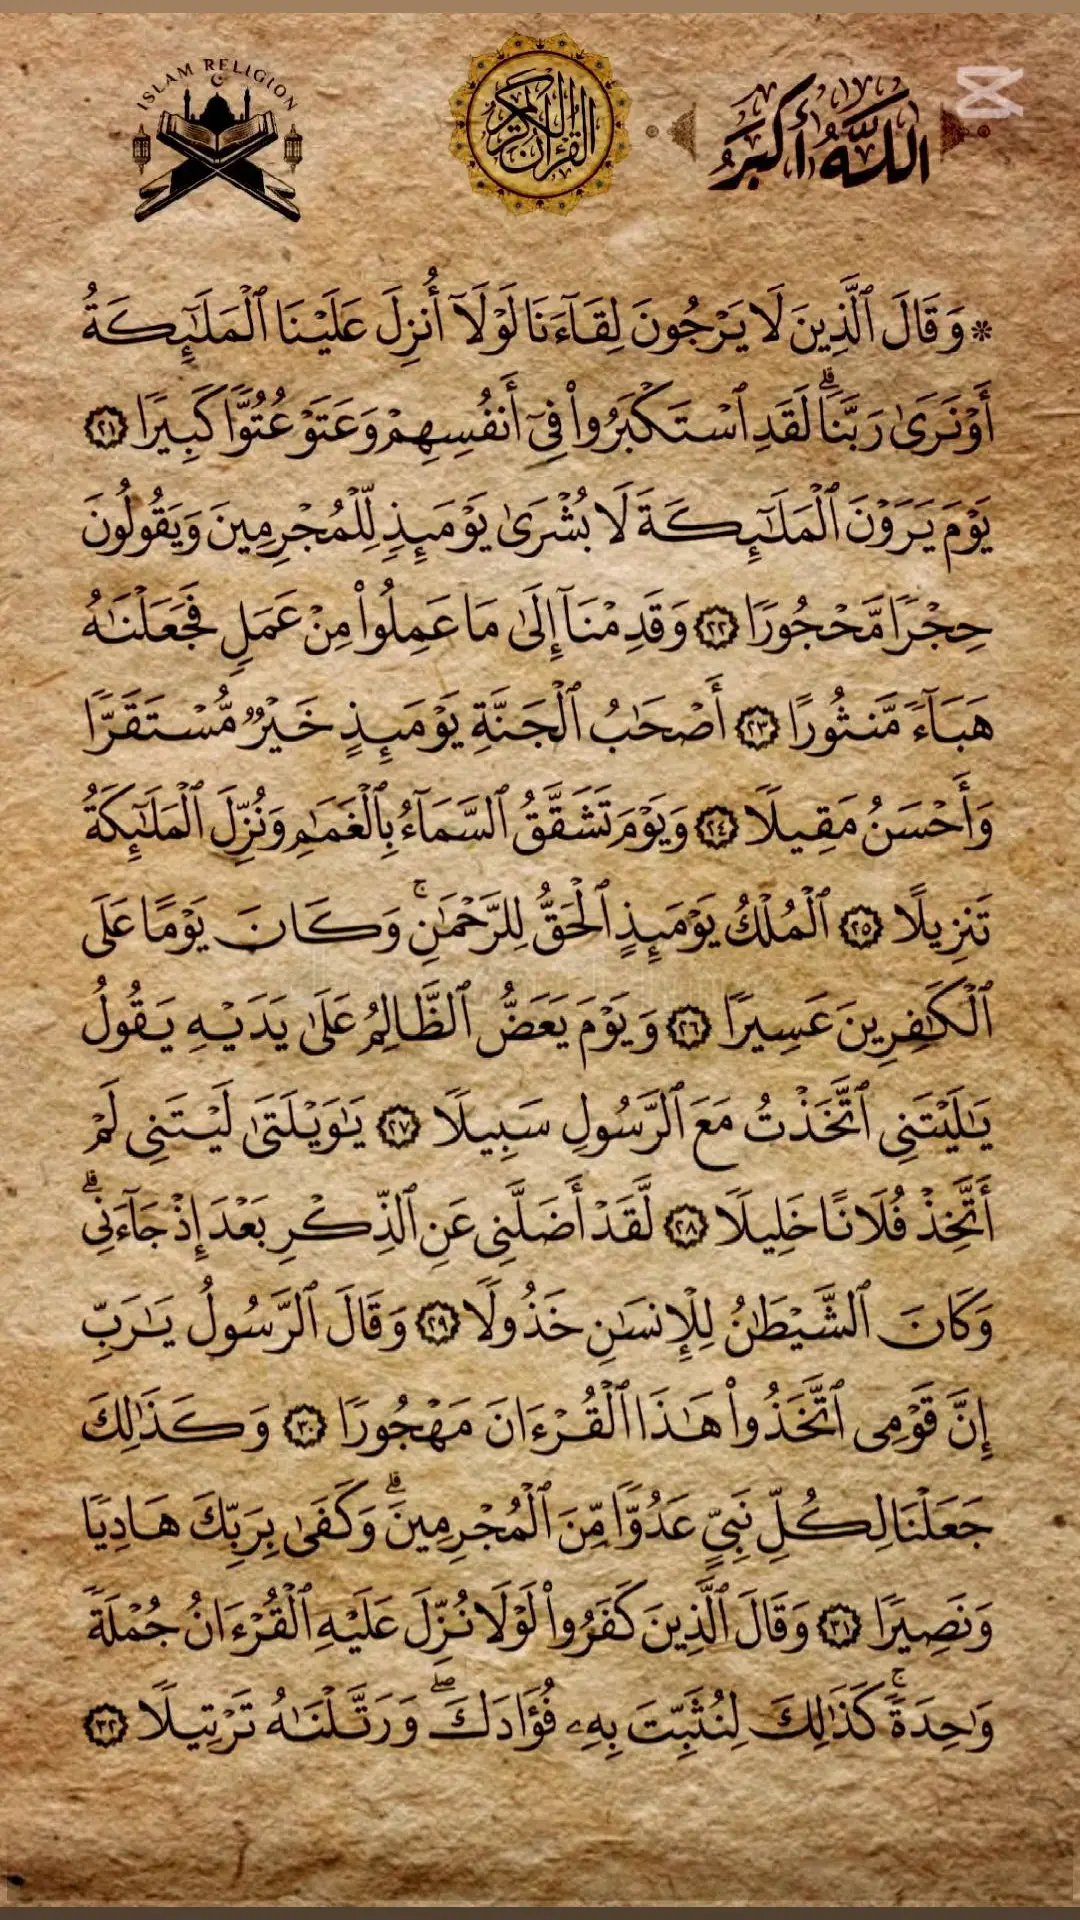 ISLAM RELIGION
القرآن الكريم
اللَّهُ أَكْبَرُ
* وَقَالَ ٱلَّذِينَ لَا يَرْجُونَ لِقَآءَنَا لَوْلَآ أُنزِلَ عَلَيْنَا ٱلْمَلَٰٓئِكَةُ
أَوْ نَرَىٰ رَبَّنَا ۗ لَقَدِ ٱسْتَكْبَرُوا۟ فِىٓ أَنفُسِهِمْ وَعَتَوْ عُتُوًّا كَبِيرًا ٢١
يَوْمَ يَرَوْنَ ٱلْمَلَٰٓئِكَةَ لَا بُشْرَىٰ يَوْمَئِذٍ لِّلْمُجْرِمِينَ وَيَقُولُونَ
حِجْرًا مَّحْجُورًا ٢٢ وَقَدِمْنَآ إِلَىٰ مَا عَمِلُوا۟ مِنْ عَمَلٍ فَجَعَلْنَٰهُ
هَبَآءً مَّنثُورًا ٢٣ أَصْحَٰبُ ٱلْجَنَّةِ يَوْمَئِذٍ خَيْرٌ مُّسْتَقَرًّا
وَأَحْسَنُ مَقِيلًا ٢٤ وَيَوْمَ تَشَقَّقُ ٱلسَّمَآءُ بِٱلْغَمَٰمِ وَنُزِّلَ ٱلْمَلَٰٓئِكَةُ
تَنزِيلًا ٢٥ ٱلْمُلْكُ يَوْمَئِذٍ ٱلْحَقُّ لِلرَّحْمَٰنِ ۚ وَكَانَ يَوْمًا عَلَى
ٱلْكَٰفِرِينَ عَسِيرًا ٢٦ وَيَوْمَ يَعَضُّ ٱلظَّالِمُ عَلَىٰ يَدَيْهِ يَقُولُ
يَٰلَيْتَنِى ٱتَّخَذْتُ مَعَ ٱلرَّسُولِ سَبِيلًا ٢٧ يَٰوَيْلَتَىٰ لَيْتَنِى لَمْ
أَتَّخِذْ فُلَانًا خَلِيلًا ٢٨ لَّقَدْ أَضَلَّنِى عَنِ ٱلذِّكْرِ بَعْدَ إِذْ جَآءَنِى ۗ
وَكَانَ ٱلشَّيْطَٰنُ لِلْإِنسَٰنِ خَذُولًا ٢٩ وَقَالَ ٱلرَّسُولُ يَٰرَبِّ
إِنَّ قَوْمِى ٱتَّخَذُوا۟ هَٰذَا ٱلْقُرْءَانَ مَهْجُورًا ٣٠ وَكَذَٰلِكَ
جَعَلْنَا لِكُلِّ نَبِىٍّ عَدُوًّا مِّنَ ٱلْمُجْرِمِينَ ۗ وَكَفَىٰ بِرَبِّكَ هَادِيًا
وَنَصِيرًا ٣١ وَقَالَ ٱلَّذِينَ كَفَرُوا۟ لَوْلَا نُزِّلَ عَلَيْهِ ٱلْقُرْءَانُ جُمْلَةً
وَٰحِدَةً ۚ كَذَٰلِكَ لِنُثَبِّتَ بِهِۦ فُؤَادَكَ ۖ وَرَتَّلْنَٰهُ تَرْتِيلًا ٣٢